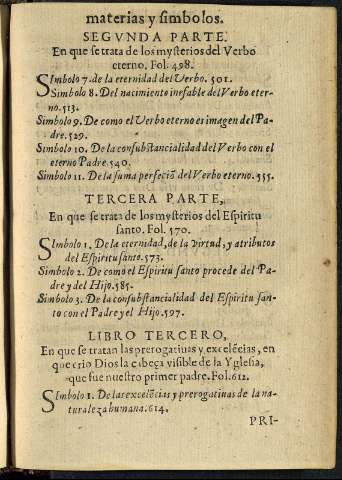 materias y simbolos.
SEGVNDA PARTE.
En que se trata de los mysterios del Verbo
eterno. Fol. 498.
Simbolo 7. de la eternidad del Verbo. 501.
Simbolo 8. Del nacimiento inefable del Verbo eter-
no. 513.
Simbolo 9. De como el Verbo eterno es imagen del Pa-
dre. 529.
Simbolo 10. De la consubstancialidad del Verbo con el
eterno Padre. 540.
Simbolo 11. De la suma perfeciõ del Verbo eterno. 555.
TERCERA PARTE,
En que se trata de los mysterios del Espiritu
santo. Fol. 570.
Simbolo 1. De la eternidad, de la virtud, y atributos
del Espiritu santo. 573.
Simbolo 2. De como el Espiritu santo procede del Pa-
dre y del Hijo. 585.
Simbolo 3. De la consubstancialidad del Espiritu san-
to con el Padre y el Hijo. 597.
LIBRO TERCERO,
En que se tratan las prerogatiuas y excelẽcias, en
que crio Dios la cabeça visible de la Yglesia,
que fue nuestro primer padre. Fol. 612.
Simbolo 1. De las excelẽcias y prerogatiuas de la na-
turaleza humana. 614.
PRI-